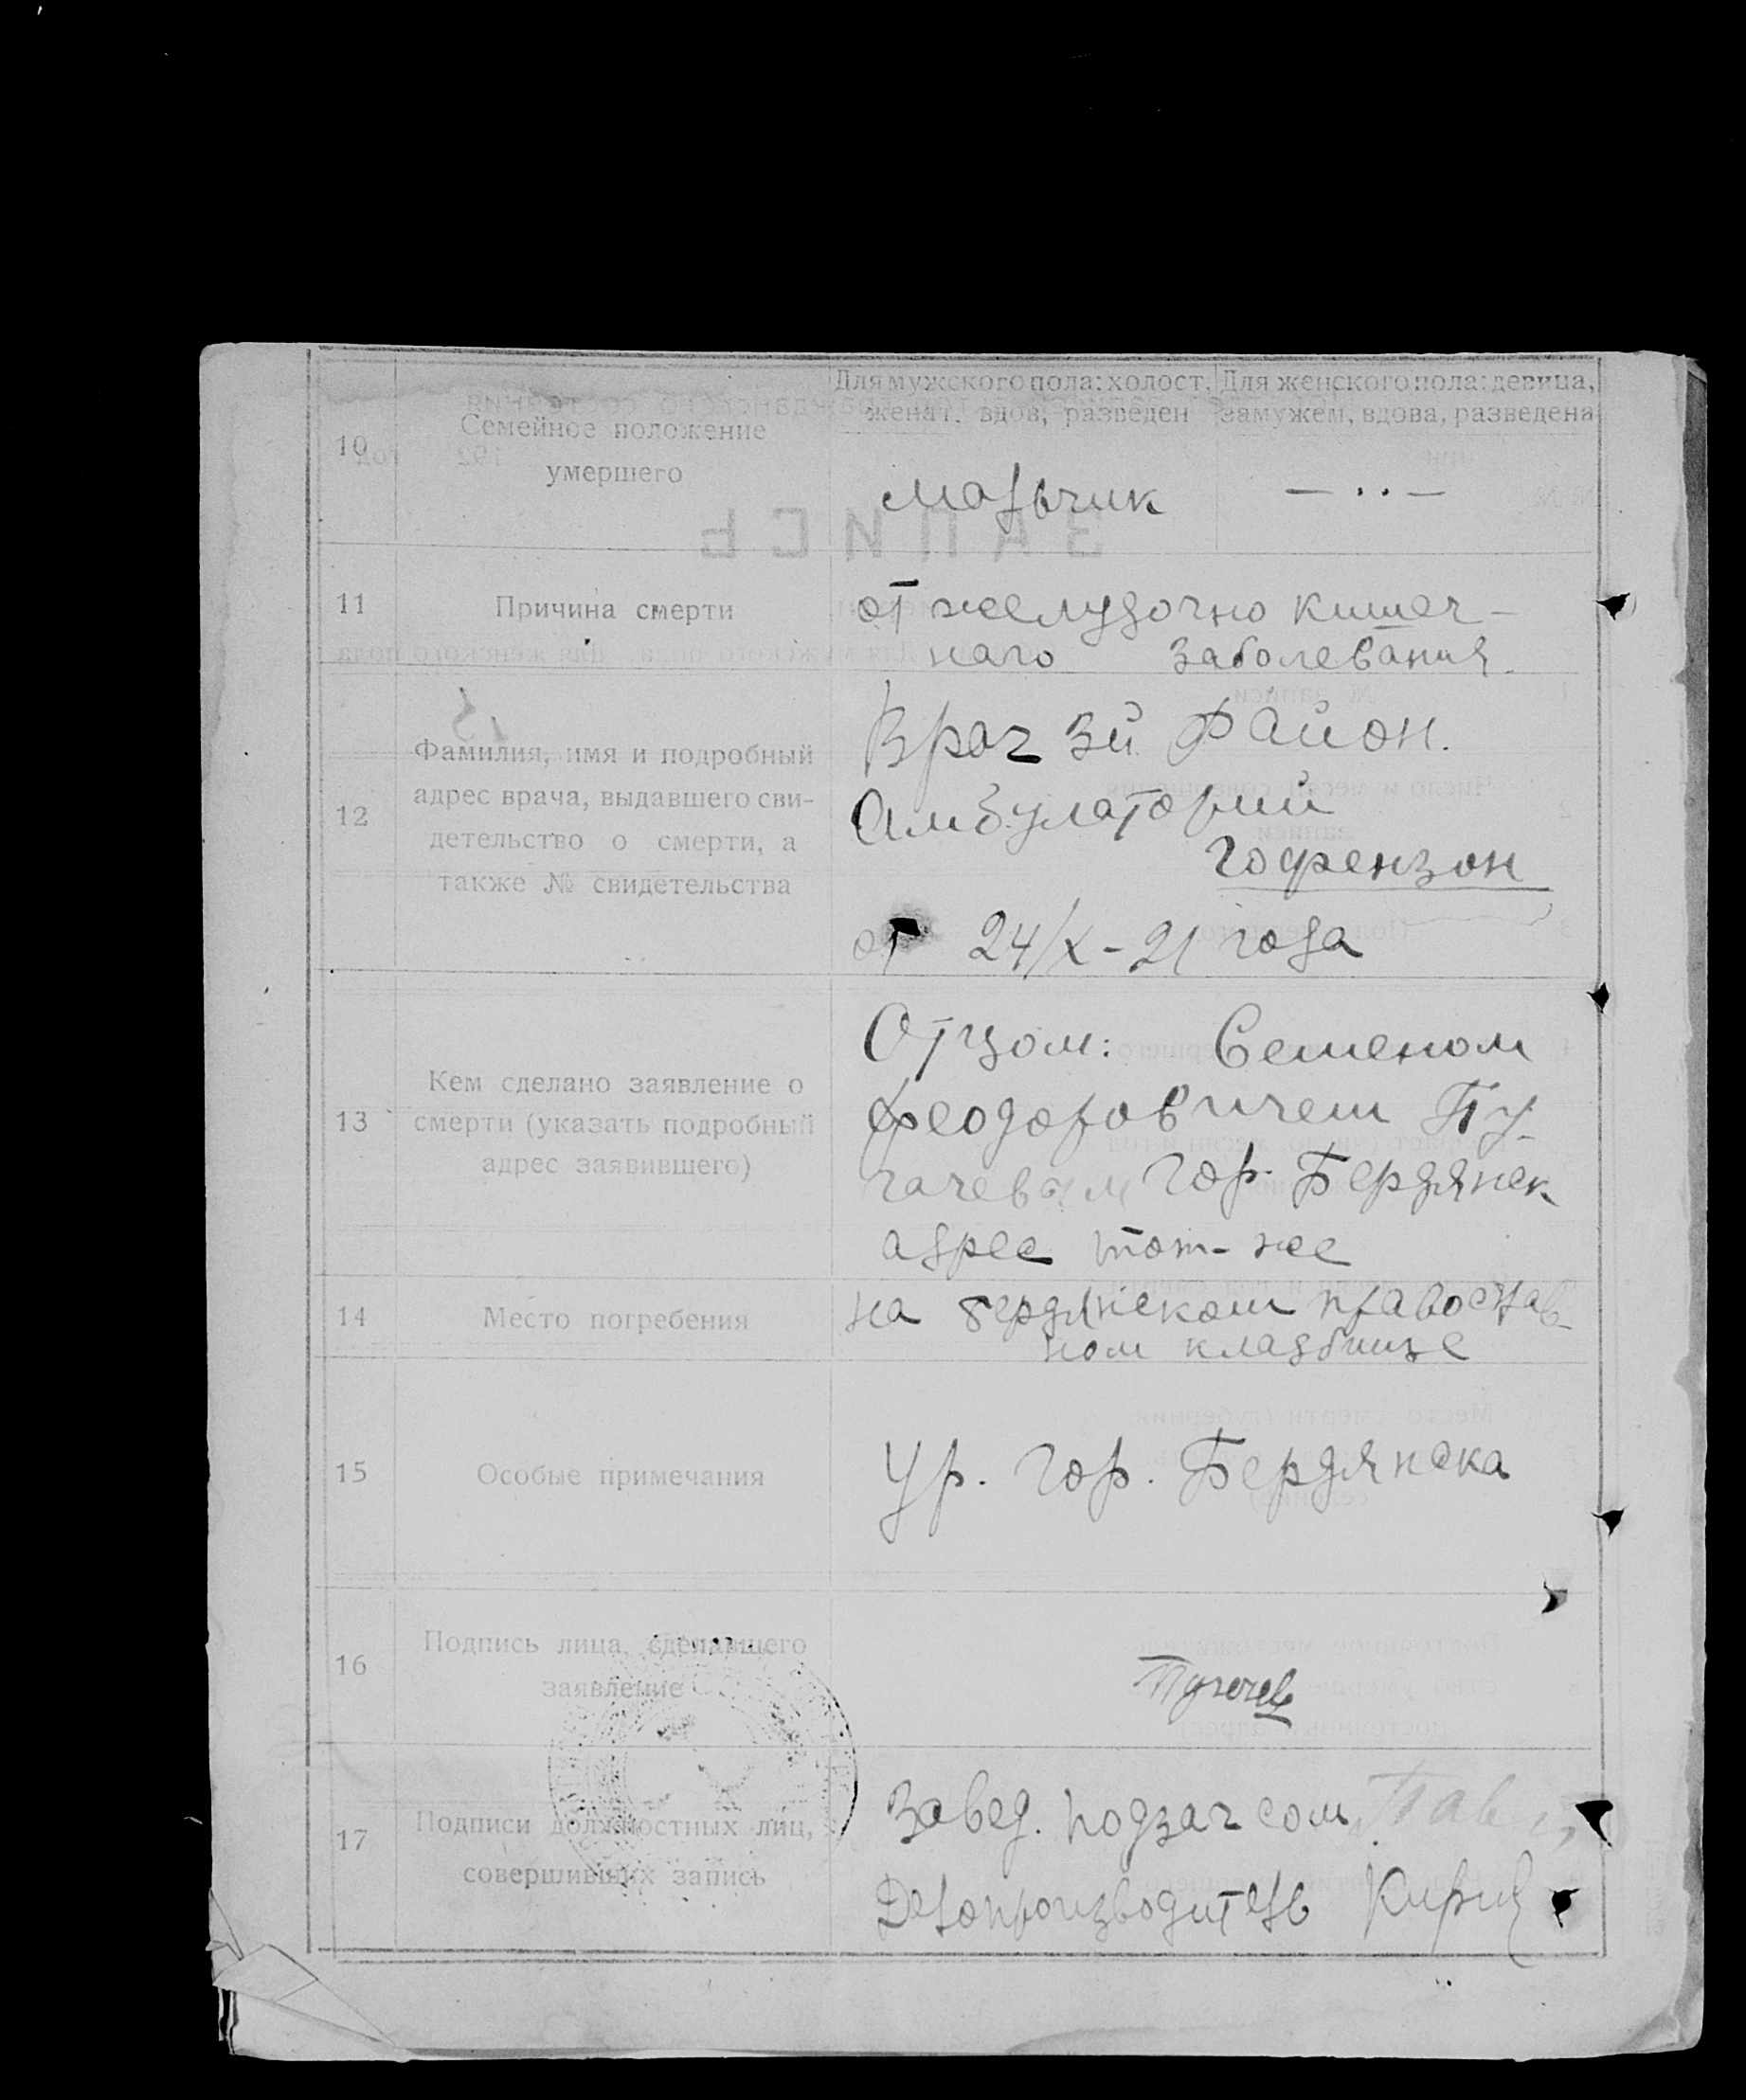 Для мужского пола: холост, женат, вдов, разведен
Для женского пола: девица, замужем, вдова, разведена
10
Семейное положение
умершего
мальчик
— ·· —
11
Причина смерти
от желудочно кишеч-
наго заболевания.
12
Фамилия, имя и подробный
адрес врача, выдавшего сви-
детельство о смерти, а
также № свидетельства
Врач 3й Район.
Амбулатории
Гофензон
от 24/X-21 года
13
Кем сделано заявление о
смерти (указать подробный
адрес заявившего)
Отцом: Семеном
Феодоровичем Пу-
гачевым Гор. Бердянск
адрес тот-же
14
Место погребения
на бердянском православ-
ном кладбище
15
Особые примечания
Ур. Гор. Бердянска
16
Подпись лица, сделавшего
заявление
Пугачев
17
Подписи должностных лиц,
совершивших запись
Завед. подзагсом
Делопроизводитель